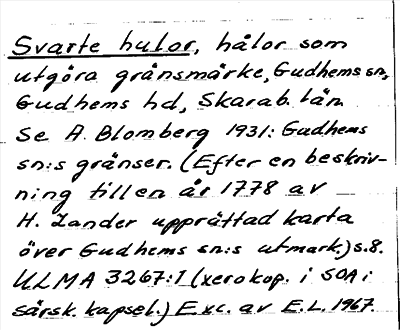 Svarte hulor, hålor som
utgöra gränsmärke, Gudhems sn,
Gudhems hd, Skarab. län.
Se A. Blomberg 1931: Gudhems
sn:s gränser. (Efter en beskriv-
ning till en år 1778 av
H. Zander upprättad karta
över Gudhems sn:s utmark.) s. 8.
ULMA 3267:1 (xerokop. i SOA i
särsk. kapsel.) Exc. av E.L. 1967.